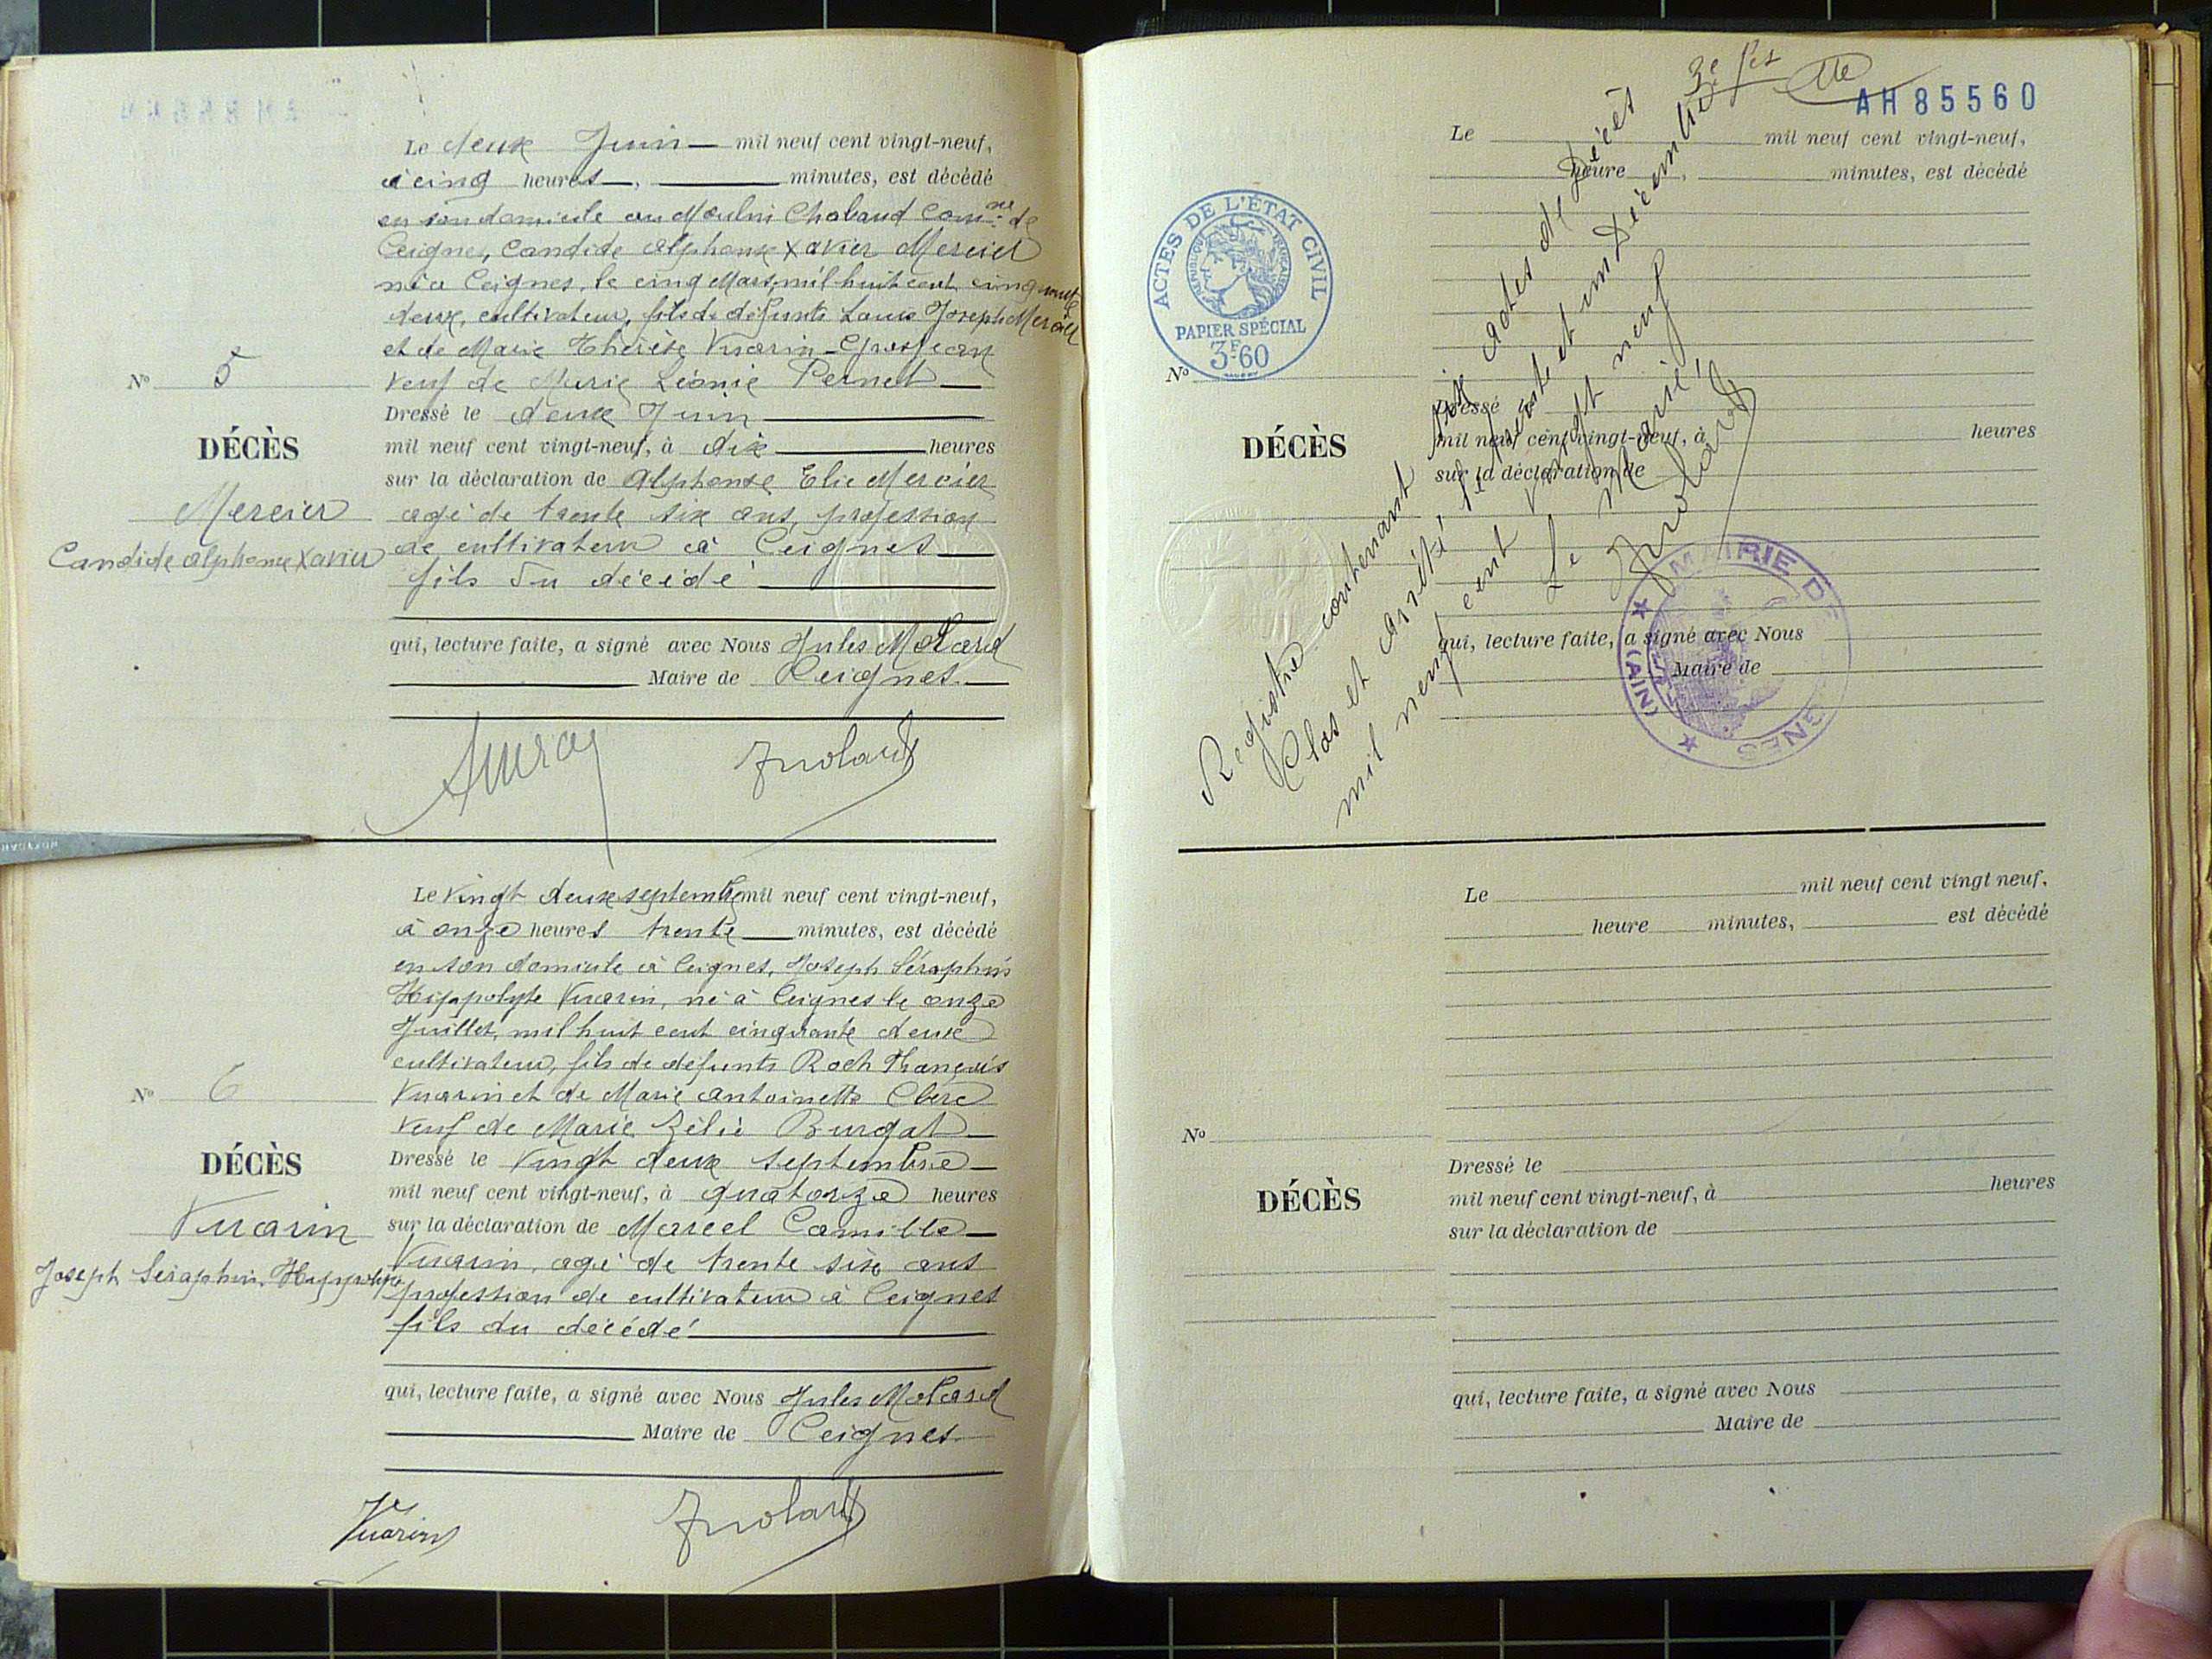 Le deux Juin mil neuf cent vingt-neuf,
à cinq heures, minutes, est décédé
en son domicile au Moulin Chabaud Comne de
Ceignes, Candide Alphonse Xavier Mercier
né à Ceignes, le cinq Mars, mil huit cent cinquante
deux, cultivateur, fils de défunts Louis Joseph Mercier
et de Marie Thérèse Vuarin-Grosjean
veuf de Marie Léonie Pernet
Dressé le deux Juin
mil neuf cent vingt-neuf, à dix heures
sur la déclaration de Alphonse Elie Mercier
agé de trente six ans, profession
de cultivateur à Ceignes
fils du décédé
qui, lecture faite, a signé avec Nous Jules Molard
Maire de Ceignes
No 5
DÉCÈS
Mercier
Candide Alphonse Xavier
JMolard
Le vingt deux septembre mil neuf cent vingt-neuf,
à onze heures trente minutes, est décédé
en son domicile à Ceignes, Joseph Séraphin
Hippolyte Vuarin, né à Ceignes le onze
Juillet, mil huit cent cinquante deux
cultivateur, fils de défunts Roch François
Vuarin et de Marie Antoinette Clerc
veuf de Marie Zélie Burgat
Dressé le vingt deux septembre
mil neuf cent vingt-neuf, à quatorze heures
sur la déclaration de Marcel Camille
Vuarin, agé de trente six ans
profession de cultivateur à Ceignes
fils du décédé
qui, lecture faite, a signé avec Nous Jules Molard
Maire de Ceignes
No 6
DÉCÈS
Vuarin
Joseph Séraphin Hippolyte
Vuarin
JMolard
AH85560
ACTES DE L'ÉTAT CIVIL
RÉPUBLIQUE FRANÇAISE
PAPIER SPÉCIAL
3F60
Le mil neuf cent vingt-neuf,
heure, minutes, est décédé
No
DÉCÈS
Dressé le
mil neuf cent vingt-neuf, à heures
sur la déclaration de
qui, lecture faite, a signé avec Nous
Maire de
Registre contenant six actes de Décès
Clos et arrêté, le trente et un Décembre
mil neuf cent vingt neuf
Le Maire,
JMolard
MAIRIE DE
(AIN)
Le mil neuf cent vingt neuf,
heure minutes, est décédé
No
DÉCÈS
Dressé le
mil neuf cent vingt-neuf, à heures
sur la déclaration de
qui, lecture faite, a signé avec Nous
Maire de